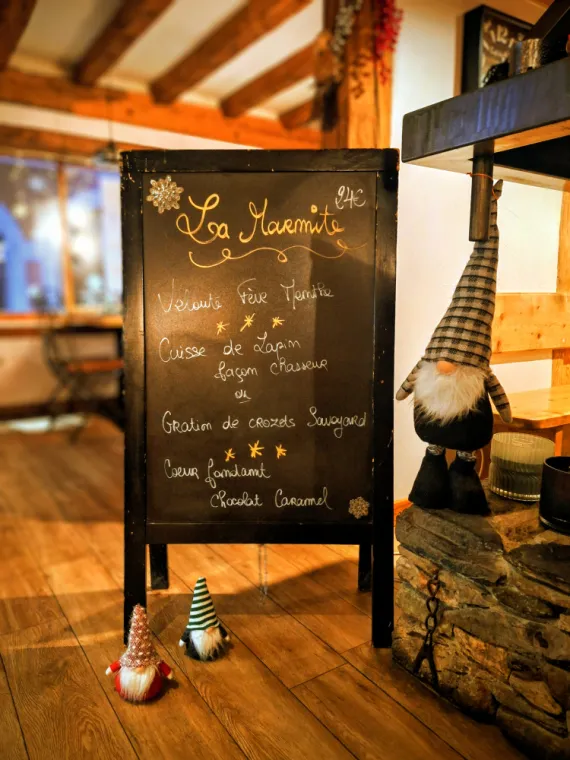 24€
La Marmite
Velouté Fève Menthe
Cuisse de Lapin
façon chasseur
ou
Gration de crozets Savoyard
Coeur fondant
Chocolat Caramel